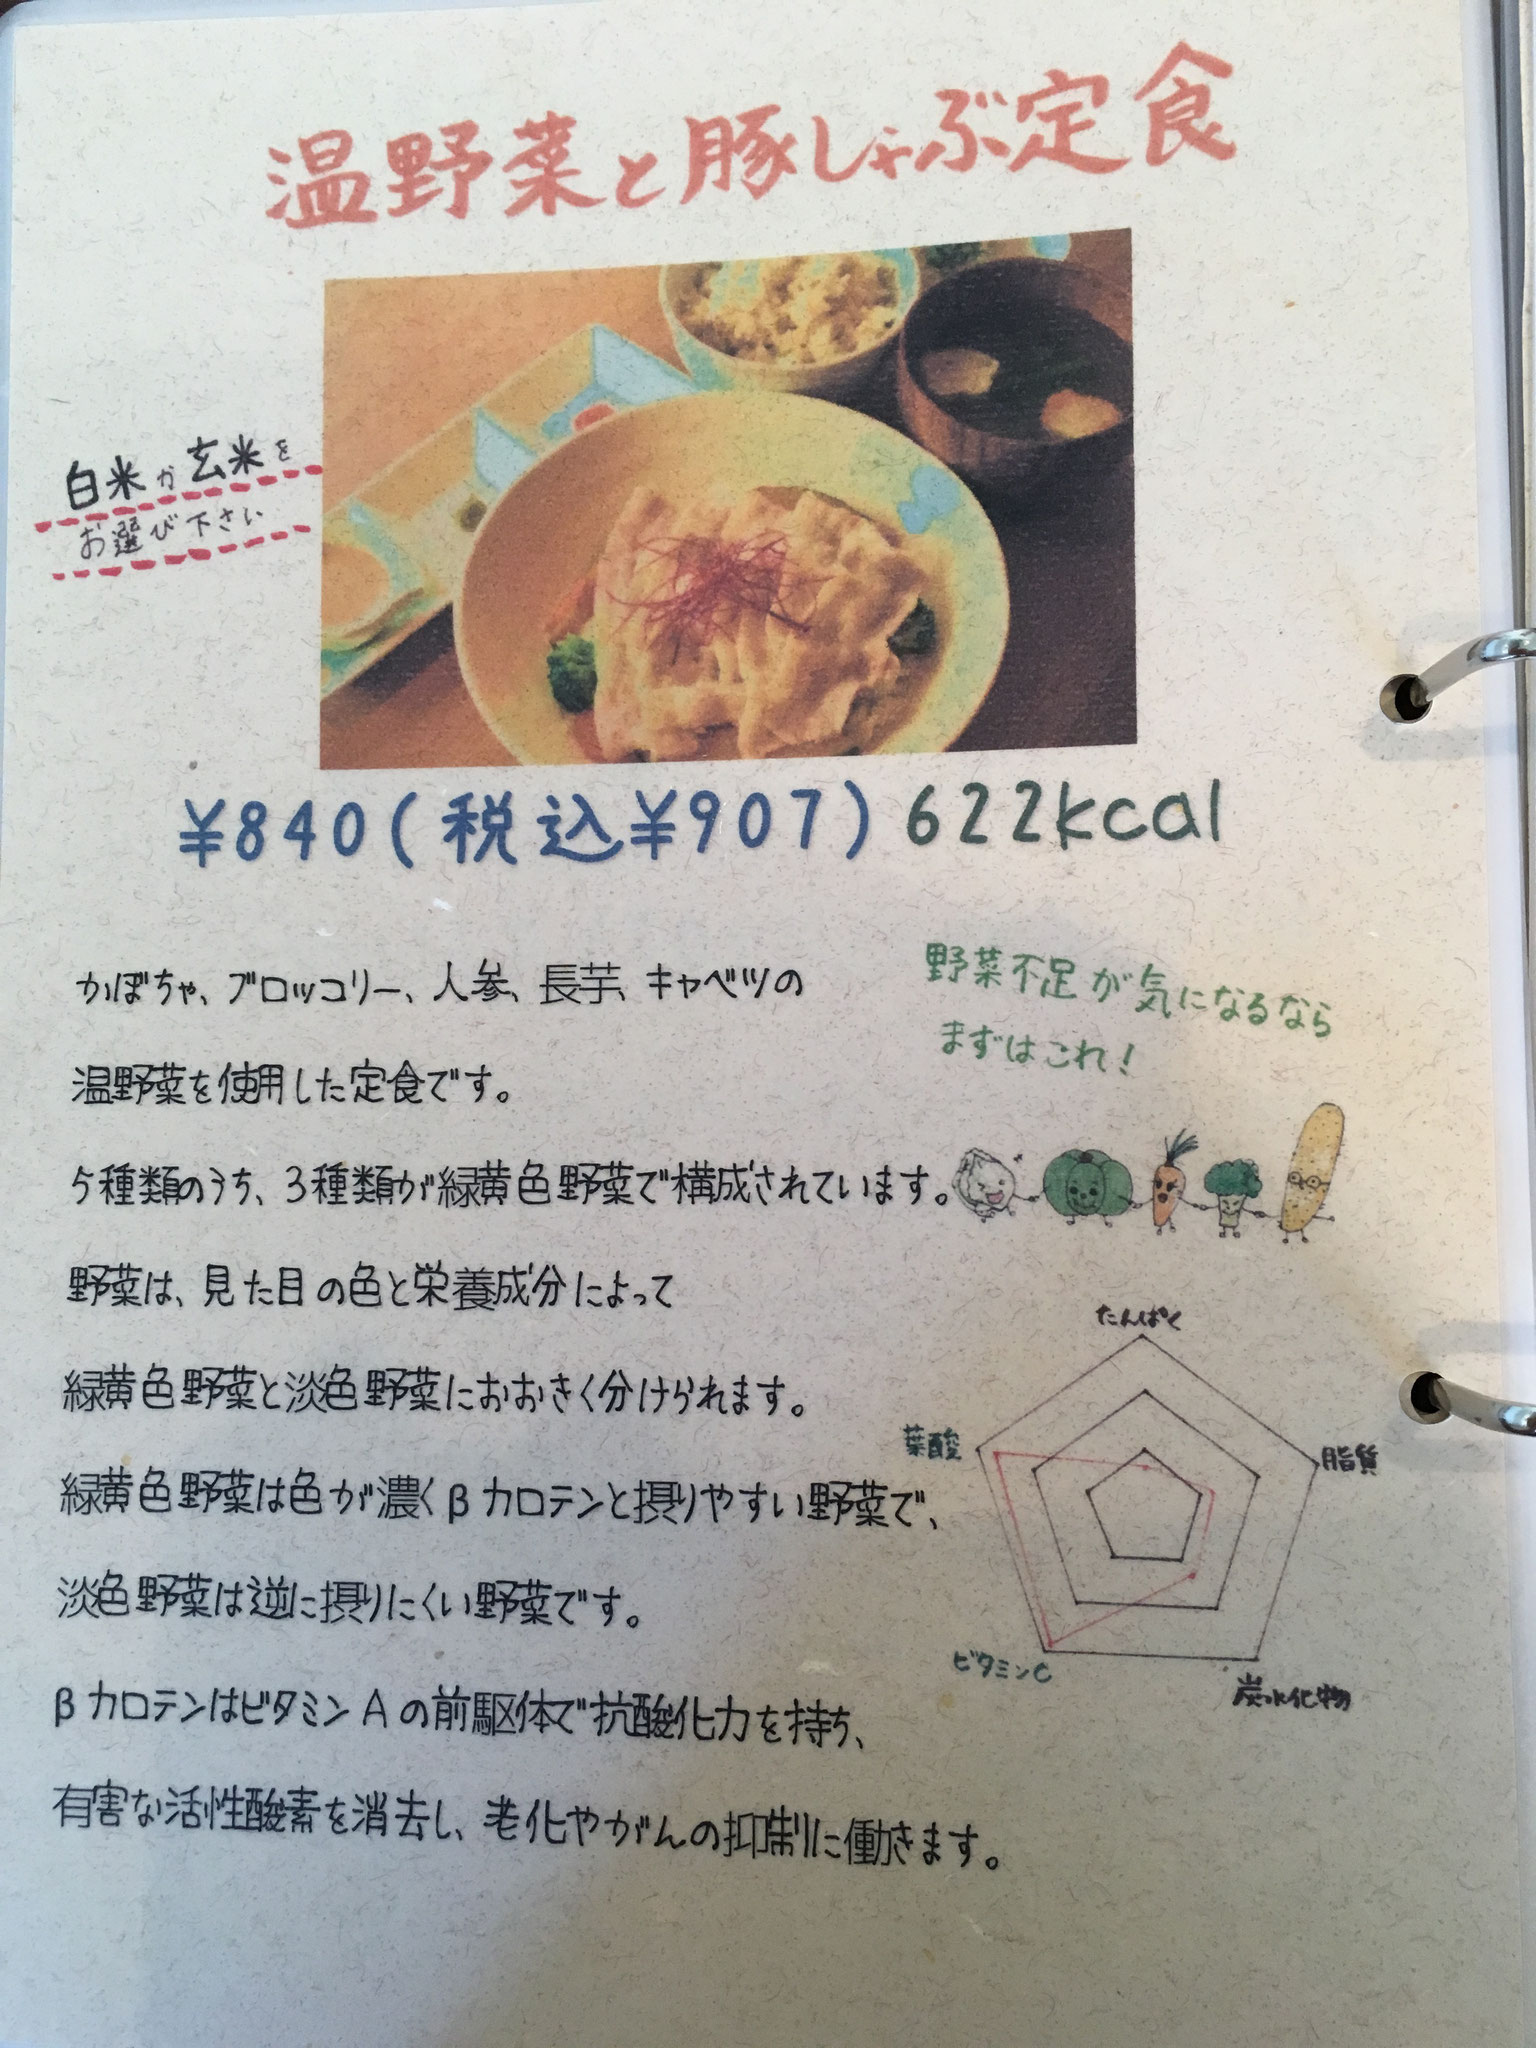 温野菜と豚しゃぶ定食
白米か玄米を
お選び下さい
¥840(税込¥907) 622kcal
かぼちゃ、ブロッコリー、人参、長芋、キャベツの
温野菜を使用した定食です。
5種類のうち、3種類が緑黄色野菜で構成されています。
野菜は、見た目の色と栄養成分によって
緑黄色野菜と淡色野菜におおきく分けられます。
緑黄色野菜は色が濃くβカロテンと摂りやすい野菜で、
淡色野菜は逆に摂りにくい野菜です。
βカロテンはビタミンAの前駆体で抗酸化力を持ち、
有害な活性酸素を消去し、老化やがんの抑制に働きます。
野菜不足が気になるなら
まずはこれ!
たんぱく
葉酸
脂質
ビタミンC
炭水化物